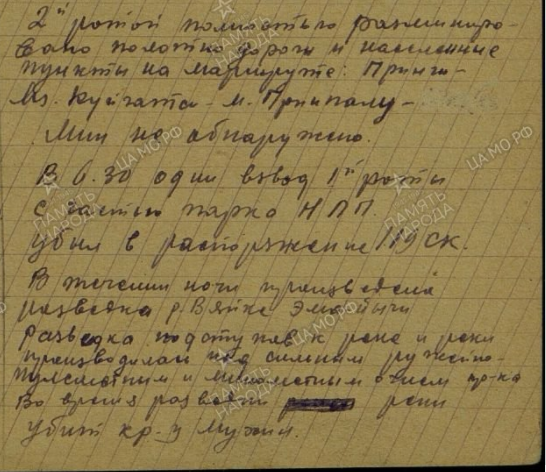 2й ротой полностью разминиро-
вано полотно дороги и населенные
пункты на маршруте: Принги-
Мз. Куйгатс - м. Приипалу -
Мин не обнаружено.
В 6.30 один взвод 1й роты
с частью парка НЛП
убыл в распоряжение 119 СК.
В течении ночи произведена
разведка р. Вяйке Эмайыги
Разведка подступов к реке и реки
производилась под сильным ружейно-
пулеметным и минометным огнем пр-ка
Во время разведки реки
убит кр-ц Мужин.
ПАМЯТЬ НАРОДА
ЦАМО РФ